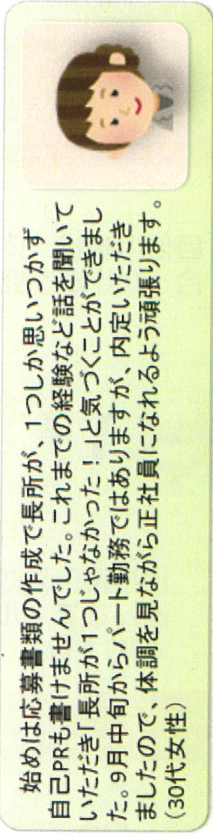 始めは応募書類の作成で長所が、1つしか思いつかず
自己PRも書けませんでした。これまでの経験など話を聞いて
いただき「長所が1つじゃなかった！」と気づくことができまし
た。9月中旬からパート勤務ではありますが、内定いただき
ましたので、体調を見ながら正社員になれるよう頑張ります。
（30代女性）